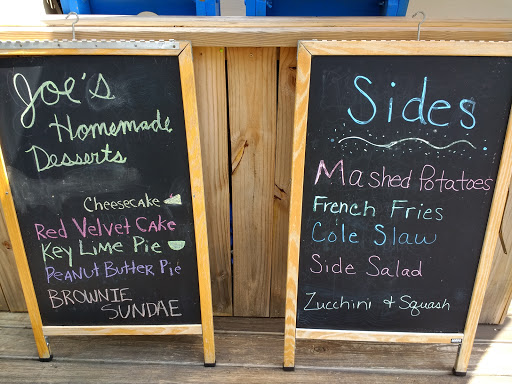 Joe's
Homemade
Desserts
Cheesecake
Red Velvet Cake
Key Lime Pie
Peanut Butter Pie
BROWNIE
SUNDAE
Sides
Mashed Potatoes
French Fries
Cole Slaw
Side Salad
Zucchini & Squash